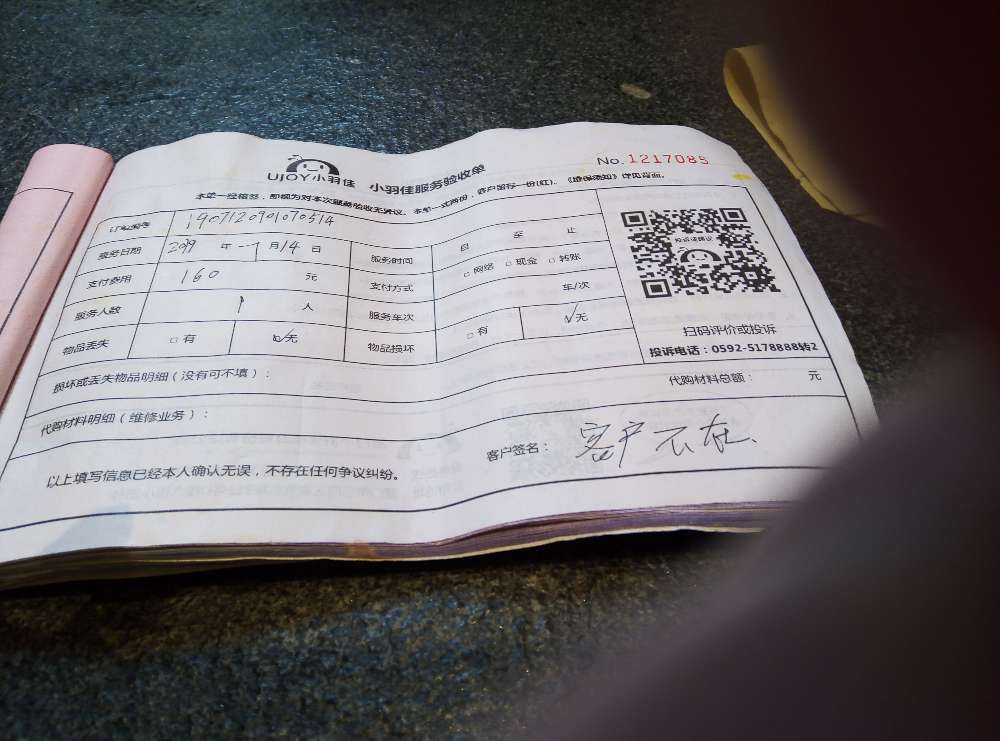 UJOY小羽佳 小羽佳服务验收单
No. 1217085
本单一经签怒，即视为对本次服务验收无异议。本单一式两份，客户留存一份(红)。《维保须知》详见背面。
订单编号 1907120901070514
服务日期 年 月14日 服务时间 自 至 止
支付费用 160 元 支付方式 □网络 □现金 □转账
服务人数 1 人 服务车次 车/次
物品丢失 □有 ☑无 物品损坏 □有 ☑无
扫码评价或投诉
投诉电话：0592-5178888转2
损坏或丢失物品明细（没有可不填）：
代购材料明细（维修业务）： 代购材料总额： 元
以上填写信息已经本人确认无误，不存在任何争议纠纷。 客户签名： 客户不在